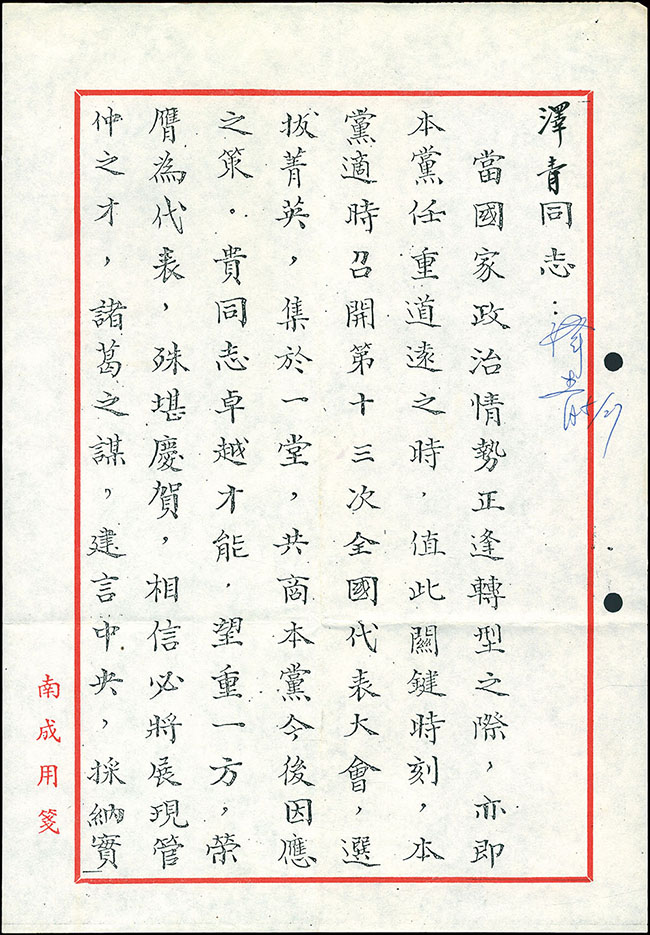 澤青同志：
當國家政治情勢正逢轉型之際，亦即
本黨任重道遠之時，值此關鍵時刻，本
黨適時召開第十三次全國代表大會，選
拔菁英，集於一堂，共商本黨今後因應
之策。貴同志卓越才能，望重一方，榮
膺為代表，殊堪慶賀，相信必將展現管
仲之才，諸葛之謀，建言中央，採納實
南成用箋